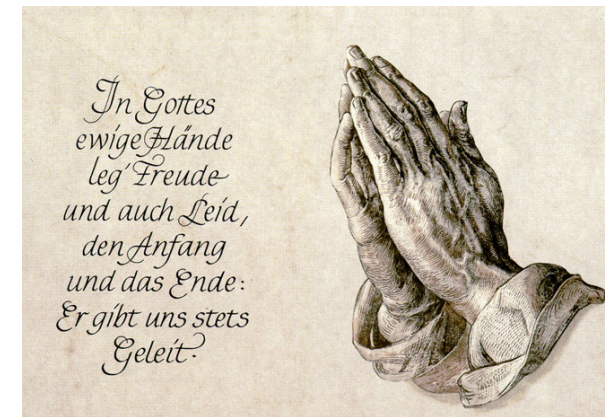 In Gottes
ewige Hände
leg' Freude
und auch Leid,
den Anfang
und das Ende:
Er gibt uns stets
Geleit.